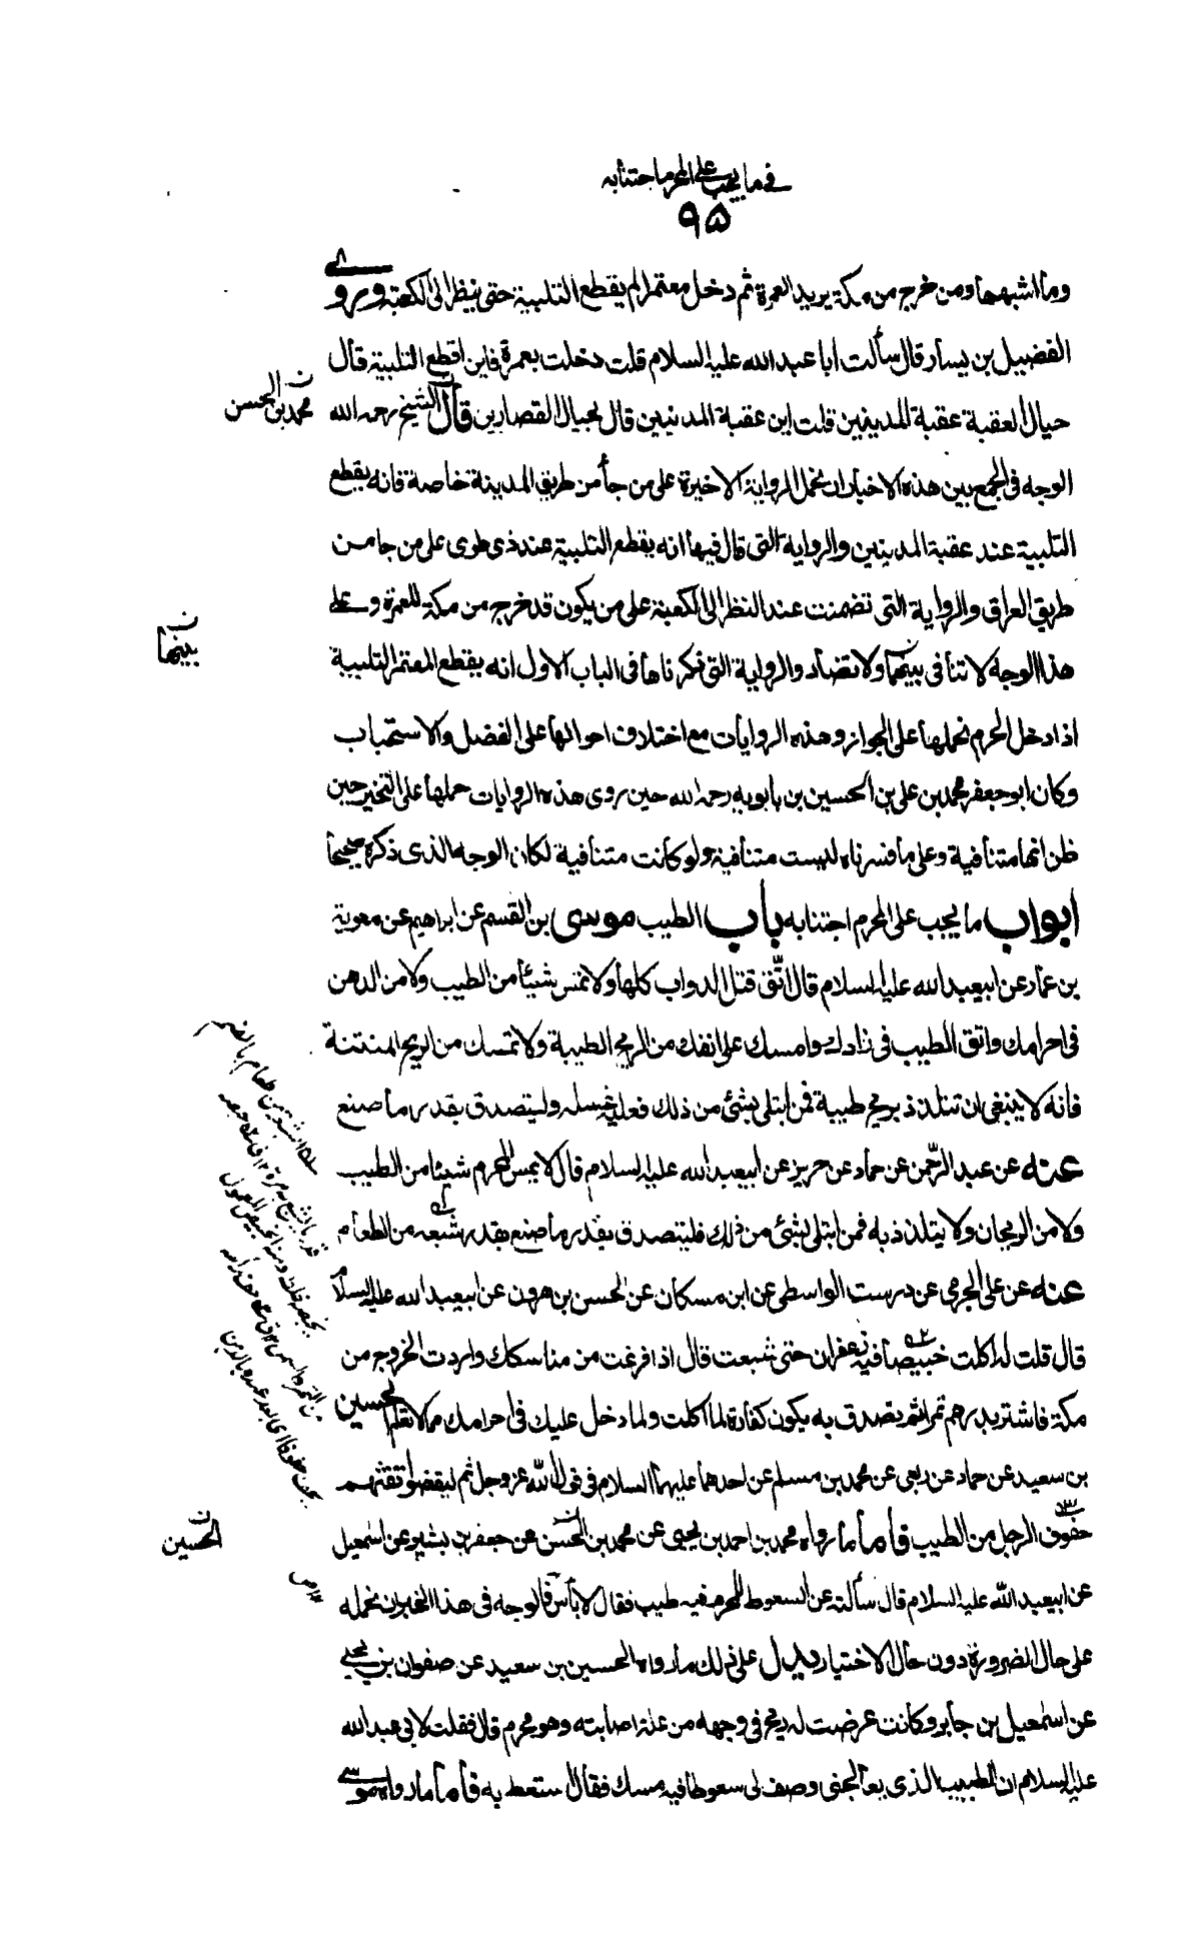 في ما يجب على المحرم اجتنابه
٩٥
وما اشبهها ومن خرج من مكة يريد العمرة ثم دخل معتمرا لم يقطع التلبية حتى ينظر الى الكعبة وروى
الفضيل بن يسار قال سألت ابا عبد الله عليه السلام قلت دخلت بعمرة فاين اقطع التلبية قال
حيال العقبة عقبة المدنيين قلت اين عقبة المدنيين قال بحيال القصارين قال الشيخ رحمه الله
محمد بن الحسن
الوجه في الجمع بين هذه الاخبار ان نحمل الرواية الاخيرة على من جاء من طريق المدينة خاصة فانه يقطع
التلبية عند عقبة المدنيين والرواية التي قال فيها انه يقطع التلبية عند ذي طوى على من جا من
طريق العراق والرواية التي تضمنت عند النظر الى الكعبة على من يكون قد خرج من مكة للعمرة وعلى
هذا الوجه لا تنافي بينهما ولا تضاد والرواية التي ذكرناها في الباب الاول انه يقطع المعتمر التلبية
بينها
اذا دخل الحرم نحملها على الجواز وهذه الروايات مع اختلاف احوالها على الفضل والاستحباب
وكان ابو جعفر محمد بن علي بن الحسين بن بابويه رحمه الله حين روى هذه الروايات حملها على التخيير حين
ظن انها متنافية وعلى ما فسرناه ليست متنافية ولو كانت متنافية لكان الوجه الذي ذكره صحيحا
ابواب ما يجب على المحرم اجتنابه باب الطيب موسى بن القسم عن ابراهيم عن معوية
بن عمار عن ابيعبد الله عليه السلام قال اتّق قتل الدواب كلها ولا تمس شيئا من الطيب ولا من الدهن
في احرامك واتق الطيب في زادك وامسك على انفك من الريح الطيبة ولا تمسك من الريح المنتنة
فانه لا ينبغي ان تتلذذ بريح طيبة فمن ابتلى بشئ من ذلك فعليه غسله وليتصدق بقدر ما صنع
عنه عن عبد الرّحمن عن حماد عن حريز عن ابيعبد الله عليه السلام قال لا يمس المحرم شيئا من الطيب
ولا من الريحان ولا يتلذذ به فمن ابتلى بشئ من ذلك فليتصدق بقدر ما صنع بقدر شبعه من الطعام
عنه عن علي الجرمي عن درست الواسطي عن ابن مسكان عن الحسن بن هرون عن ابيعبد الله عليه السلام
قال قلت له اكلت خبيصا فيه زعفران حتى شبعت قال اذا فرغت من مناسكك واردت الخروج من
مكة فاشتر بدرهم تمرا ثم تصدق به يكون كفارة لما اكلت ولما دخل عليك في احرامك مما لا تعلم الحسين
بن سعيد عن حماد عن ربعي عن محمد بن مسلم عن احدهما عليهما السلام في قول الله عز وجل ثم ليقضوا تفثهم
حفوف الرجل من الطيب فأما ما رواه محمد بن احمد بن يحيى عن محمد بن الحسن عن جعفر بن بشير عن اسمعيل
الحسين
عن ابيعبد الله عليه السلام قال سألته عن السعوط للمحرم فيه طيب فقال لا بأس فالوجه في هذا الخبر ان نحمله
على حال الضرورة دون حال الاختيار يدل على ذلك ما رواه الحسين بن سعيد عن صفوان بن يحيى
عن اسمعيل بن جابر وكانت عرضت له ريح في وجهه من علة اصابته وهو محرم قال فقلت لابي عبد الله
عليه السلام ان الطبيب الذي يعالجني وصف لي سعوطا فيه مسك فقال استعط به فأما ما رواه موسى